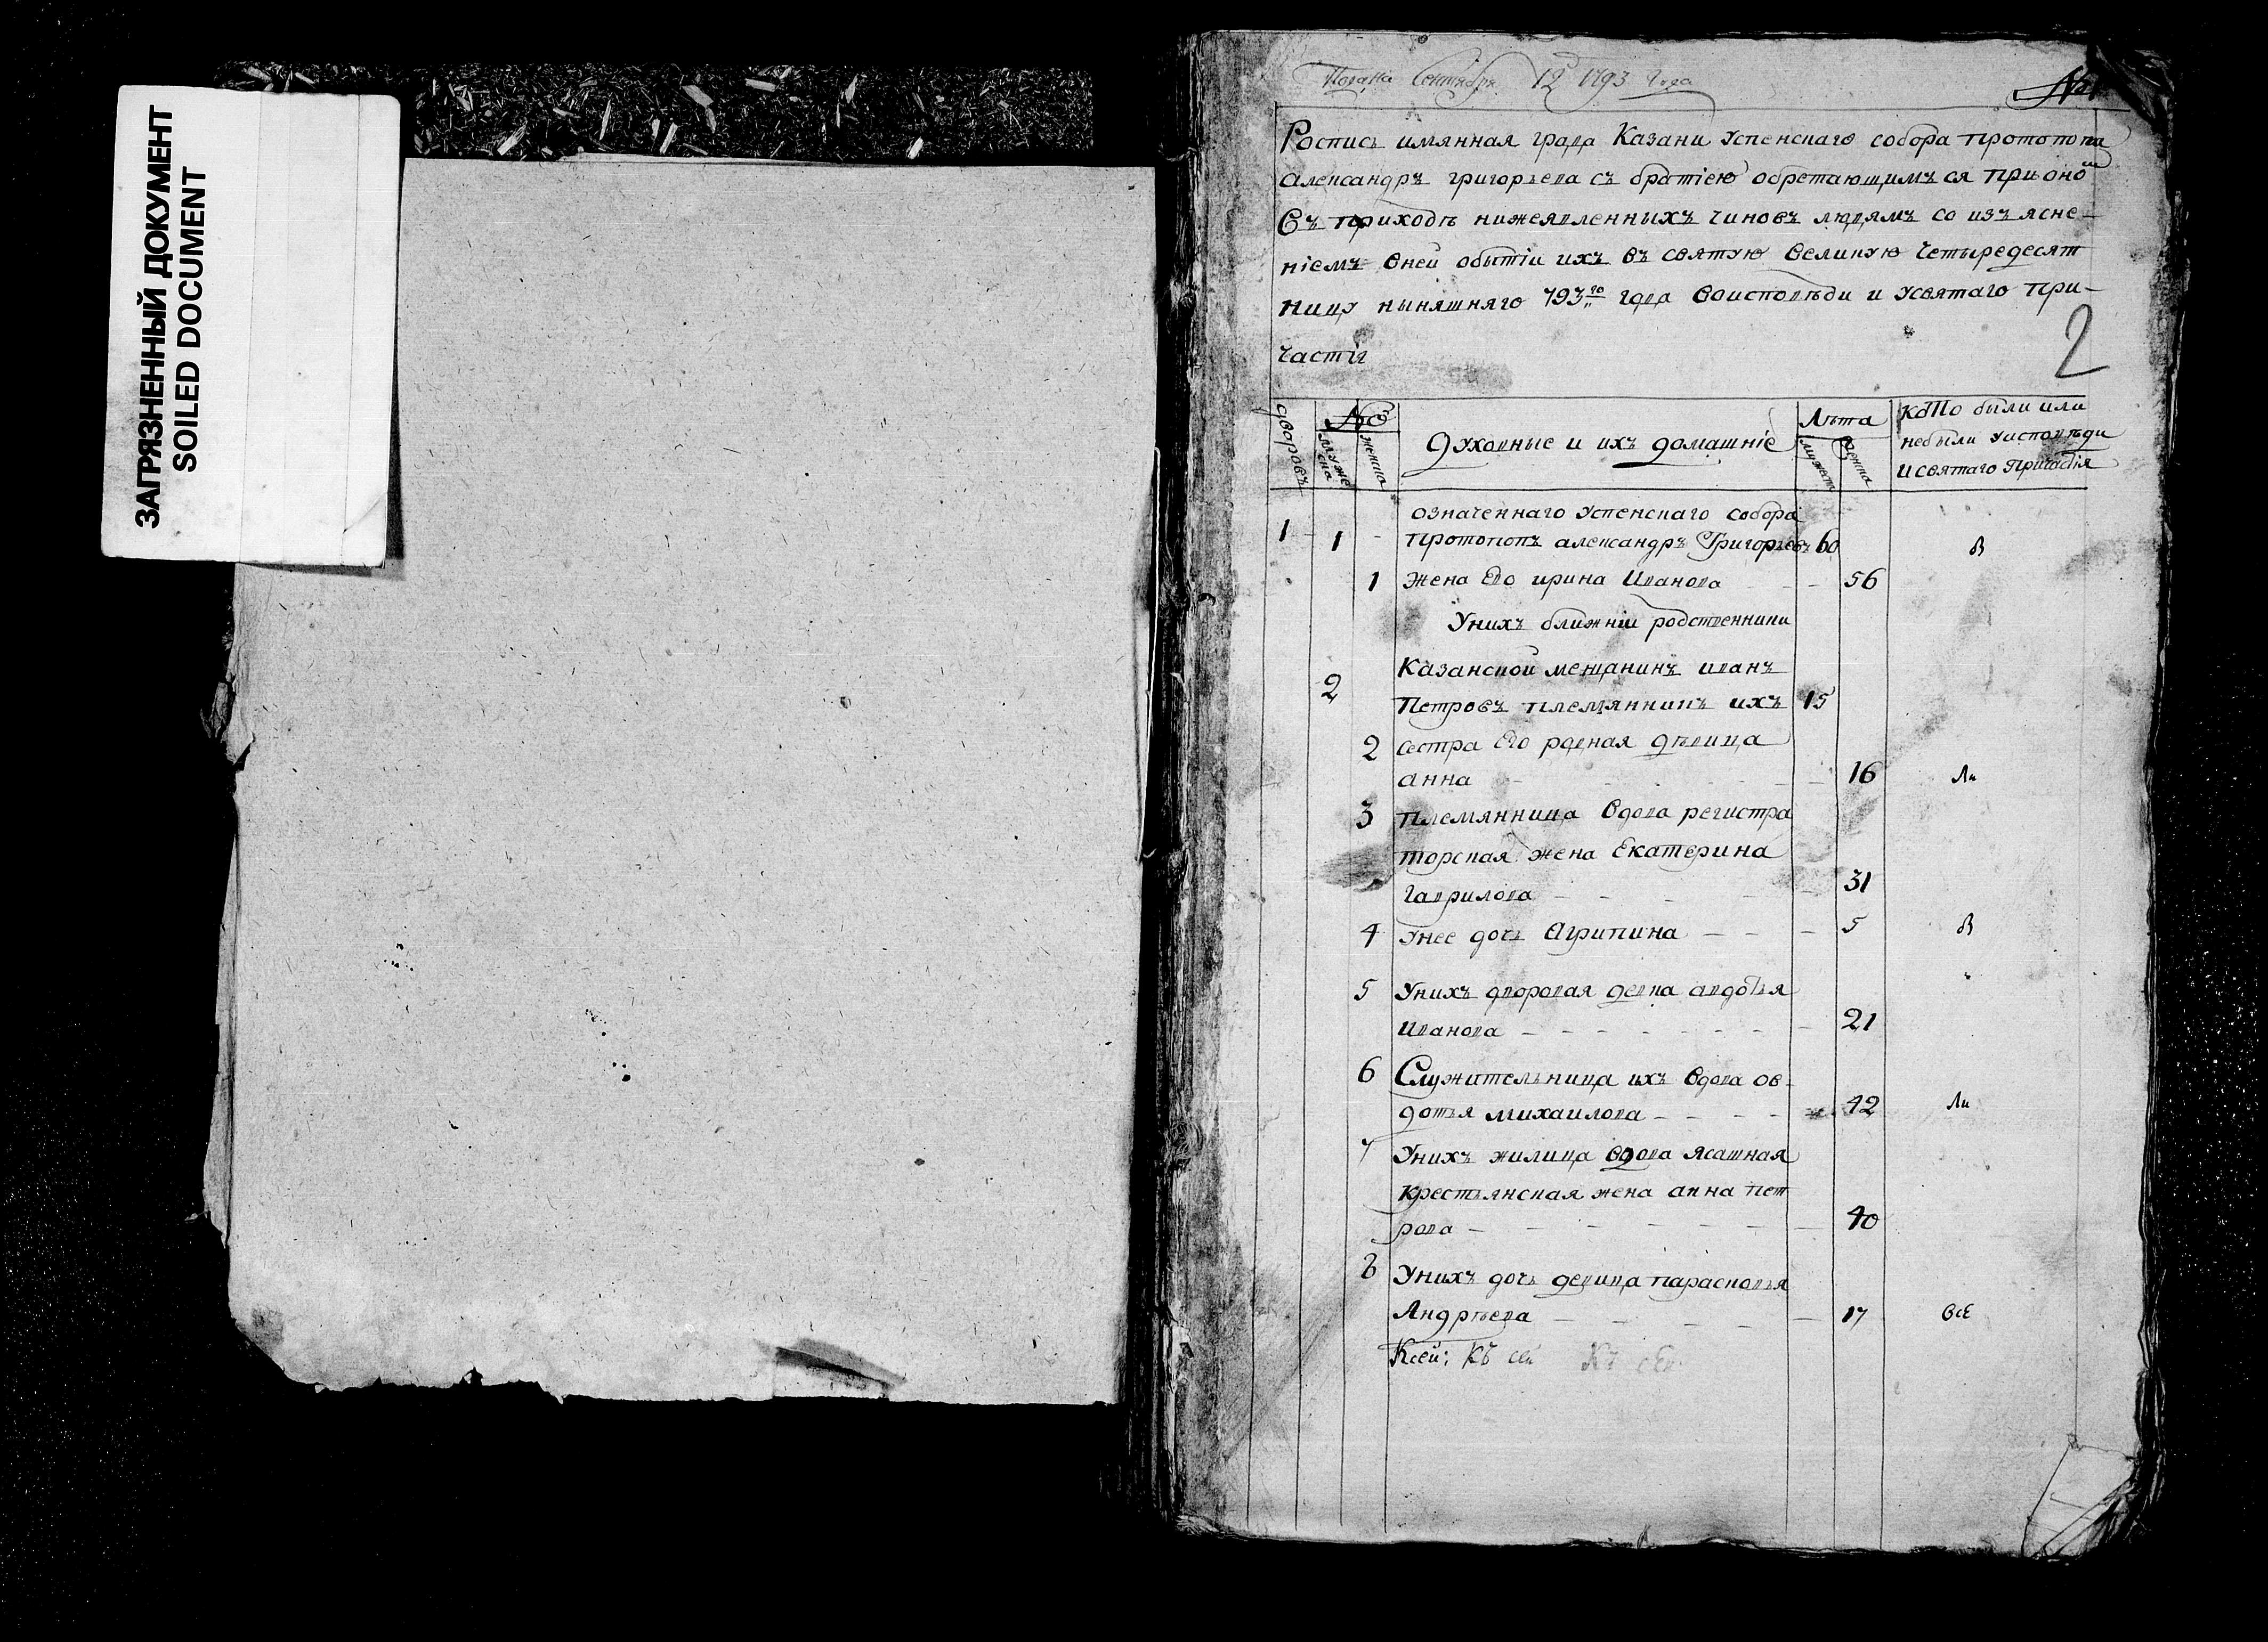 ЗАГРЯЗНЕННЫЙ ДОКУМЕНТ
SOILED DOCUMENT
Подана Сентября 12 1793 Года
№1
Роспись имянная града Казани Успенскаго собора протопопа
александръ григорьева съ братiею обретающимъся при оно
Въ приходѣ нижеявленныхъ чиновъ людямъ со изъясне-
нiемъ Вней обытiи ихъ въ святую Великую Четыредесят
ницу ныняшняго 793го года Воисповѣди и Усвятаго при-
частiя
2
дворовъ
№
мужеска
женска
Духовные и ихъ домашнiе
Лѣта
мужеск
женска
кто были или
небыли уисповѣди
и святаго Причастiя
означеннаго Успенскаго собора
1 1 протопопъ александръ Григорьевъ 60 в
1 жена Его ирина Иванова 56
Унихъ ближнiи родственники
Казанской мещанинъ иванъ
2 Петровъ племянникъ ихъ 15
2 сестра Его родная дѣвица
анна 16 Ли
3 племянница Вдова регистра
торская жена Екатерина
гаврилова 31
4 Унее дочь Агрипина 5 в
5 Унихъ дворовая девка авдотья
Иванова 21
6 Служительница ихъ Вдова ов-
дотья михаилова 42 Ли
7 Унихъ жилица вдова ясашная
крестьянская жена анна пет
рова 40
8 Унихъ дочь девица парасковья
Андрѣева 17 Всѣ
Ксей: Къ